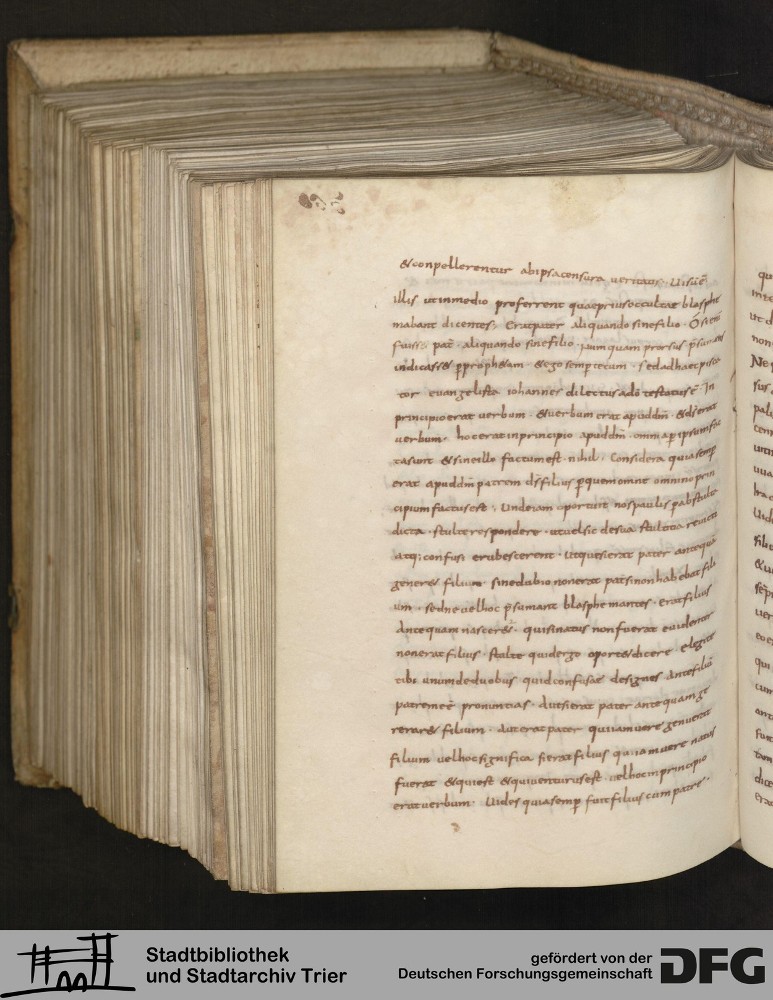 & conpellerentur ab ipsa censura ueritatis. Uisu ē
illis ut in medio proferrent quae prius occultae blasphe
mabant dicentes; Erat pater aliquando sine filio. O si enī
fuiss& pat̄ aliquando sine filio. numquam prorsus
indicass& prophetam. & ego semper tecum. sed ad haec pisca
tor euangelista iohannes dilectus a dn̄o testatus ē. In
principio erat uerbum. & uerbum erat apud dm̄. & ds̄ erat
uerbum. hoc erat in principio apud dm̄. omnia p̄ ipsum fac
ta sunt & sine illo factum est nihil. Considera quia semp̄
erat apud dm̄ patrem ds̄ filius p̄ quem omne omnino prin
cipium factus est; Unde iam oportuit nos paulis p̄ ab stulte
dicta. stulte respondere. ut uel sic de sua stultitia reuicti
atq; confusi erubescerent. Utqui si erat pater antequā
gener& filium sine dubio non erat pat̄ si non habebat fili
um. sed ne uel hoc p̄sumant blasphemantes. erat filius
antequam nascer&. qui si natus non fuerat euidenter
non erat filius. stulte quid ergo oport& dicere elegisti
tibi unum de duobus quid confusae designes ante filiū
patrem ē pronuntias. aut si erat pater antequam ge
nerar& filium. aut erat pater qui iam uere genuerat
filium uel hoc significa si erat filius qui iam uere natus
fuerat & qui est & qui uenturus est. uel hoc in principio
erat uerbum. Uides quia semp̄ fuit filius cum patre.
Stadtbibliothek
und Stadtarchiv Trier
gefördert von der
Deutschen Forschungsgemeinschaft
DFG